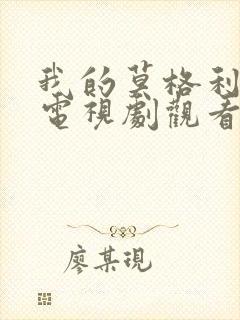 我的莫格利
電視劇觀看
廖某現